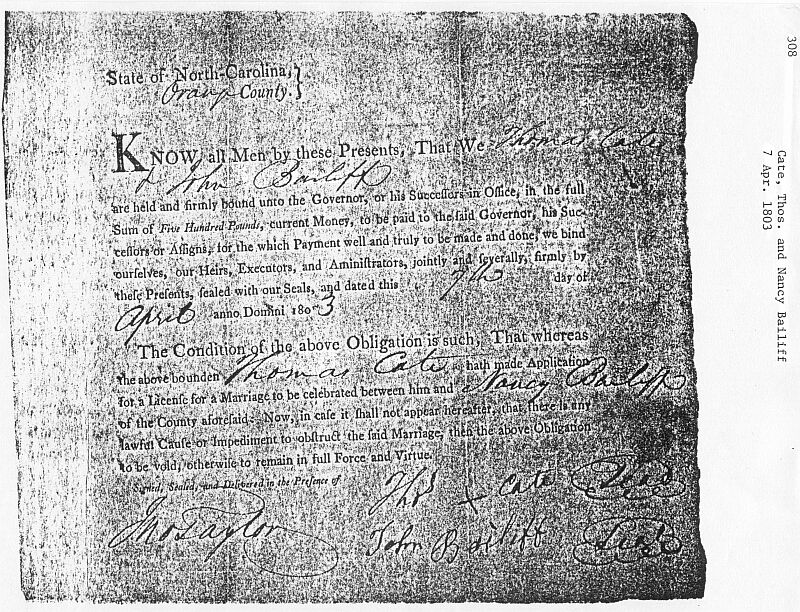 State of North-Carolina,}
Orange County.
KNOW all Men by these Presents, That We Thomas Cate
& John Bailiff
are held and firmly bound unto the Governor, or his Successors in Office, in the full
Sum of Five Hundred Pounds, current Money, to be paid to the said Governor, his Suc-
cessors or Assigns, for the which Payment well and truly to be made and done, we bind
ourselves, our Heirs, Executors, and Aministrators, jointly and severally, firmly by
these Presents, sealed with our Seals, and dated this 7th day of
April anno Domini 180 3
The Condition of the above Obligation is such, That whereas
the above bounden Thomas Cate hath made Application
for a License for a Marriage to be celebrated between him and Nancy Bailiff
of the County aforesaid. Now, in case it shall not appear hereafter, that there is any
lawful Cause or Impediment to obstruct the said Marriage, then the above Obligation
to be void, otherwise to remain in full Force and Virtue.
Signed, Sealed, and Delivered in the Presence of
Thos x Cate Seal
Jno Taylor
John Bailiff Seal
308
Cate, Thos. and Nancy Bailiff
7 Apr. 1803